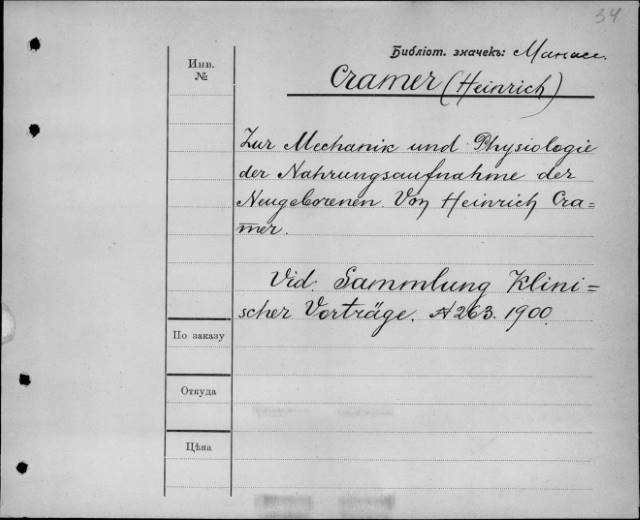 34
Библіот. значекъ: Манас.
Cramer (Heinrich)
Инв.
№
Zur Mechanik und Physiologie
der Nahrungsaufnahme der
Neugeborenen. Von Heinrich Cra=
mer.
Vid. Sammlung Klini=
scher Vorträge. № 263. 1900.
По заказу
Откуда
Цѣна